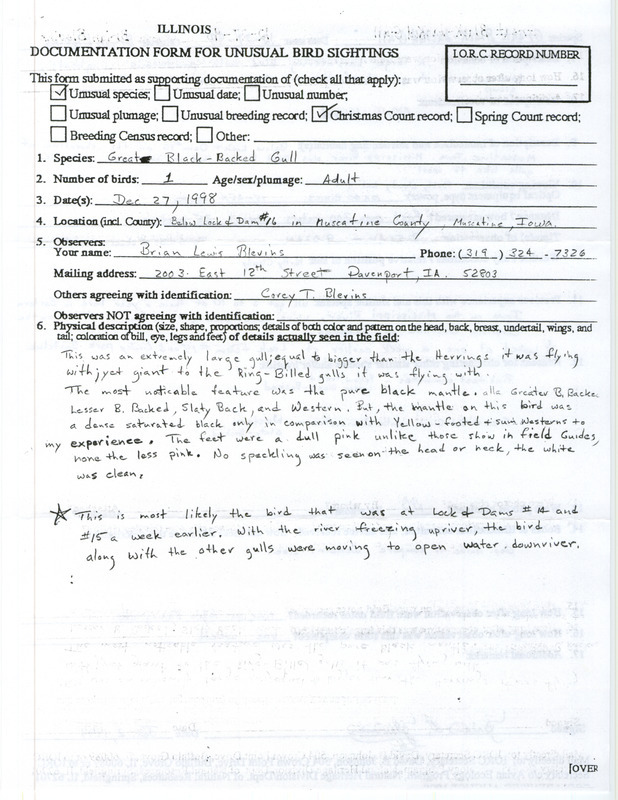 ILLINOIS
DOCUMENTATION FORM FOR UNUSUAL BIRD SIGHTINGS
I.O.R.C. RECORD NUMBER
This form submitted as supporting documentation of (check all that apply):
Unusual species; Unusual date; Unusual number;
Unusual plumage; Unusual breeding record; Christmas Count record; Spring Count record;
Breeding Census record; Other:
1. Species: Great Black-Backed Gull
2. Number of birds: 1 Age/sex/plumage: Adult
3. Date(s): Dec 27, 1998
4. Location (incl. County): Below Lock & Dam #16 in Muscatine County, Muscatine, Iowa.
5. Observers:
Your name: Brian Lewis Blevins Phone: (319) 324-7326
Mailing address: 2003 East 12th Street Davenport, IA. 52803
Others agreeing with identification: Corey T. Blevins
Observers NOT agreeing with identification:
6. Physical description (size, shape, proportions; details of both color and pattern on the head, back, breast, undertail, wings, and
tail; coloration of bill, eye, legs and feet) of details actually seen in the field:
This was an extremely large gull; equal to bigger than the Herrings it was flying
with; yet giant to the Ring-Billed gulls it was flying with.
The most noticable feature was the pure black mantle. Greater B. Backed
Lesser B. Backed, Slaty Back, and Western. But, the mantle on this bird was
a dense saturated black only in comparison with Yellow-footed & Westerns to
my experience. The feet were a dull pink unlike those show in field Guides,
none the less pink. No speckling was seen on the head or neck, the white
was clean.
☆ This is most likely the bird that was at Lock & Dams #14 and
#15 a week earlier. With the river freezing upriver, the bird
along with the other gulls were moving to open water downriver.
[OVER